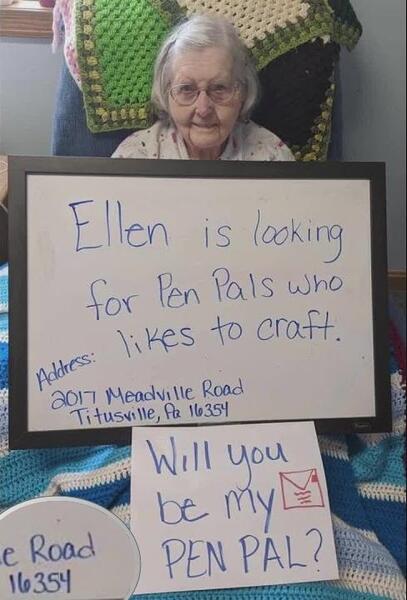 Ellen is looking
for Pen Pals who
likes to craft.
Address:
2017 Meadville Road
Titusville, Pa 16354
Will you
be my
PEN PAL?
e Road
16354